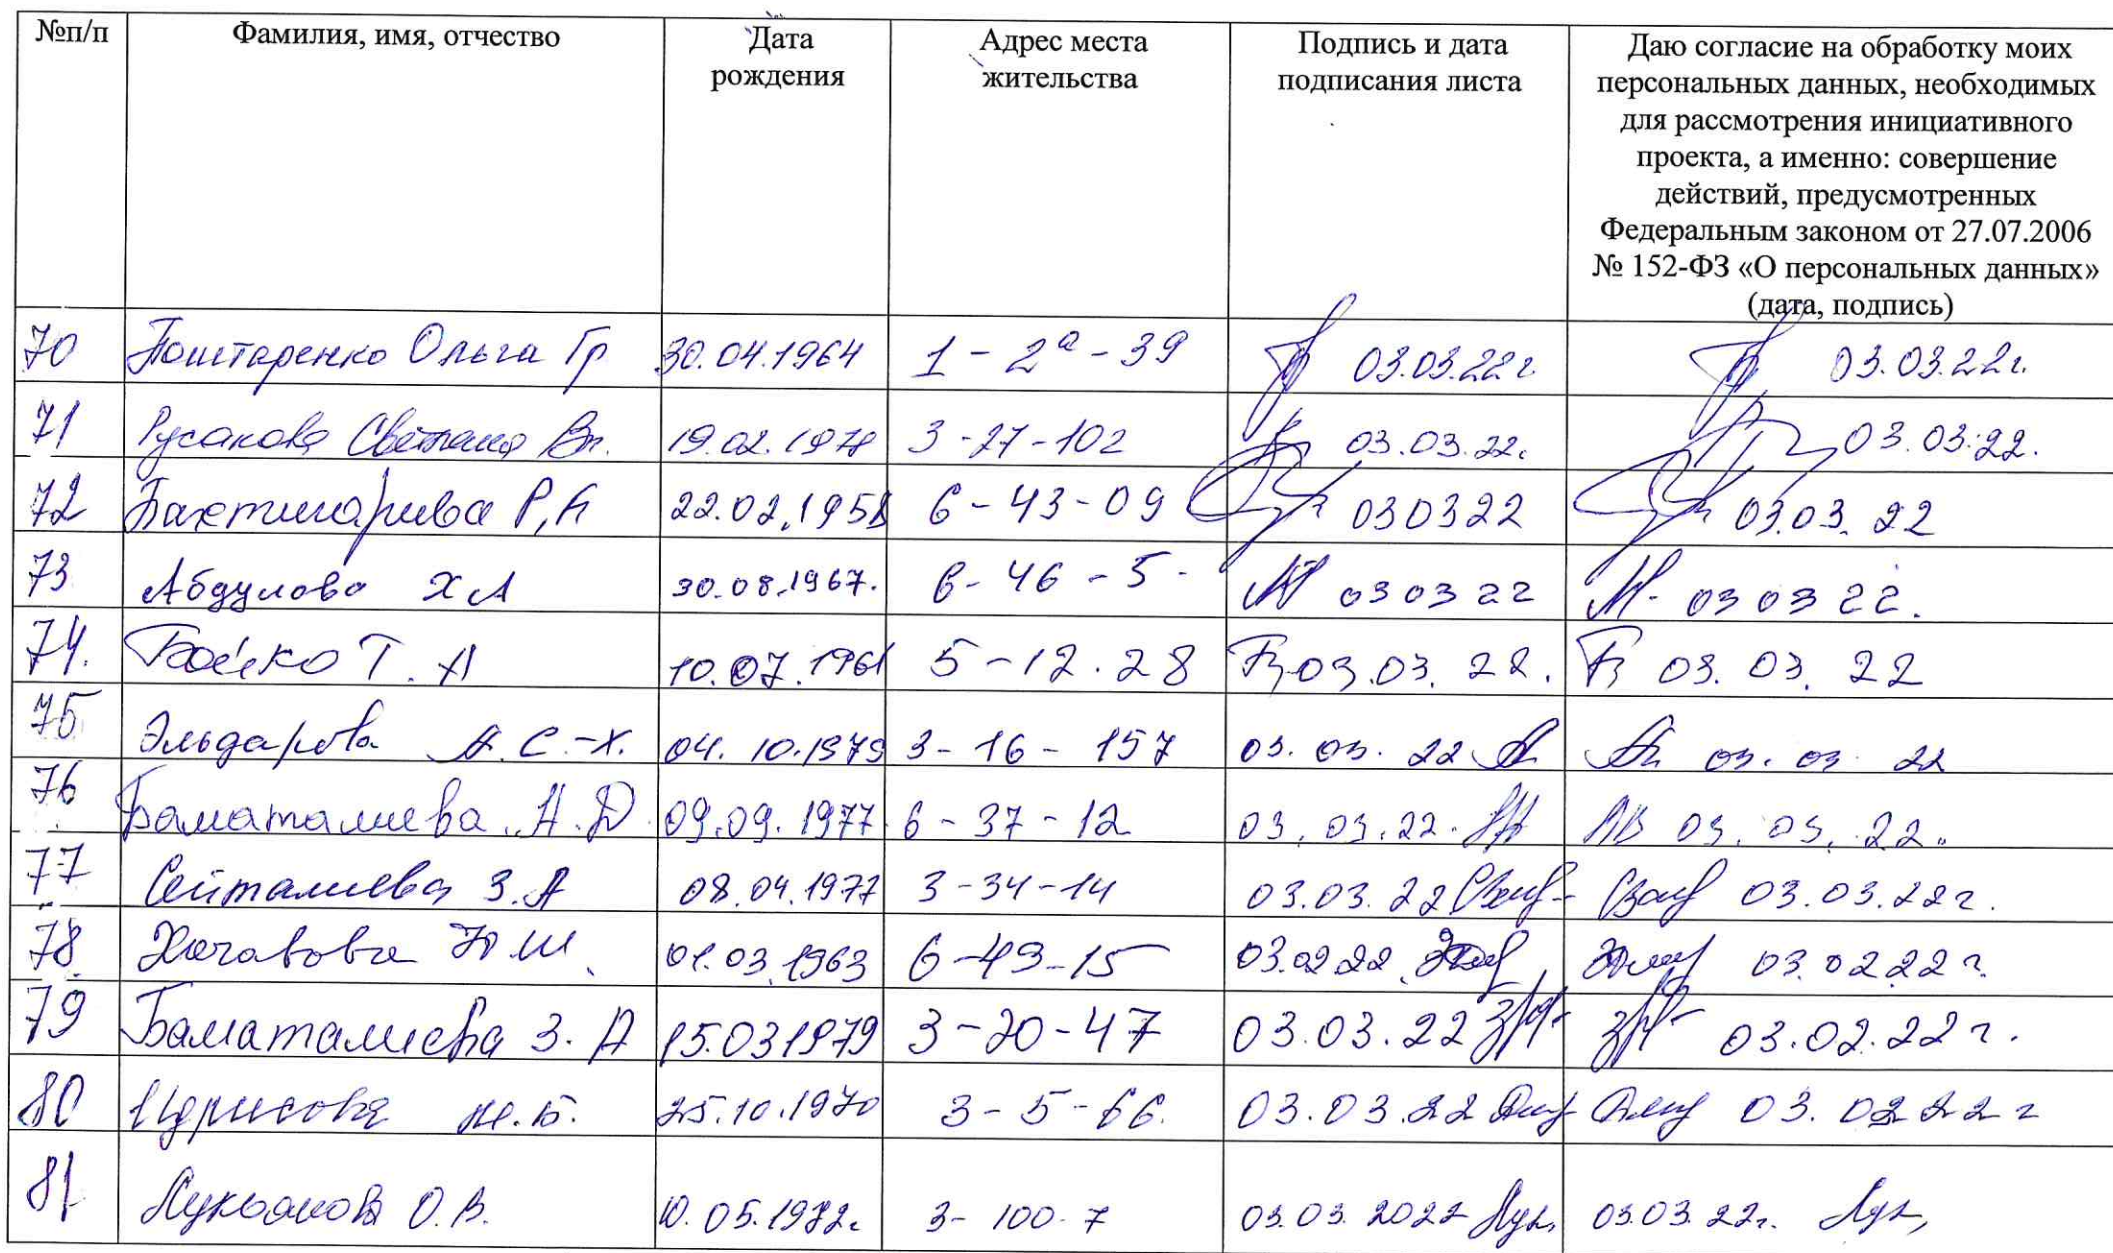 №п/п Фамилия, имя, отчество Дата рождения Адрес места жительства Подпись и дата подписания листа Даю согласие на обработку моих персональных данных, необходимых для рассмотрения инициативного проекта, а именно: совершение действий, предусмотренных Федеральным законом от 27.07.2006 № 152-ФЗ «О персональных данных» (дата, подпись)
70 Поштаренко Ольга Гр 30.04.1964 1 - 2а - 39 03.03.22г. 03.03.22г.
71 Русакова Светлана Вл. 19.02.1978 3 - 27 - 102 03.03.22. 03.03.22.
72 Бахтигариева Р,А 22.02.1958 6 - 43 - 09 030322 03.03.22
73 Абдулова Х А 30.08.1967. 6 - 46 - 5 - 030322 030322.
74. Бойко Т. А 10.07.1961 5 - 12 . 28 03.03.22. 03.03.22
75 Эльдарова А. С.-Х. 04.10.1979 3 - 16 - 157 03.03.22 03.03.22
76 Баматалиева А.Д. 09.09.1977. 6 - 37 - 12 03.03.22. 03.03.22.
77 Сейталиева З.А 08.04.1977 3 - 34 - 14 03.03.22 03.03.22г.
78 Ю Ш. 01.03.1963 6 - 49 - 15 03.02.22. 03.02.22г.
79 Баматалиева З. А 15.031979 3 - 20 - 47 03.03.22 03.02.22г.
80 Идрисова М.Б. 25.10.1970 3 - 5 - 66. 03.03.22 03.0222г
81 Лукьянова О.В. 10.05.1982. 3 - 100 - 7 03.03.2022 Лук, 03.03.22г. Лук,